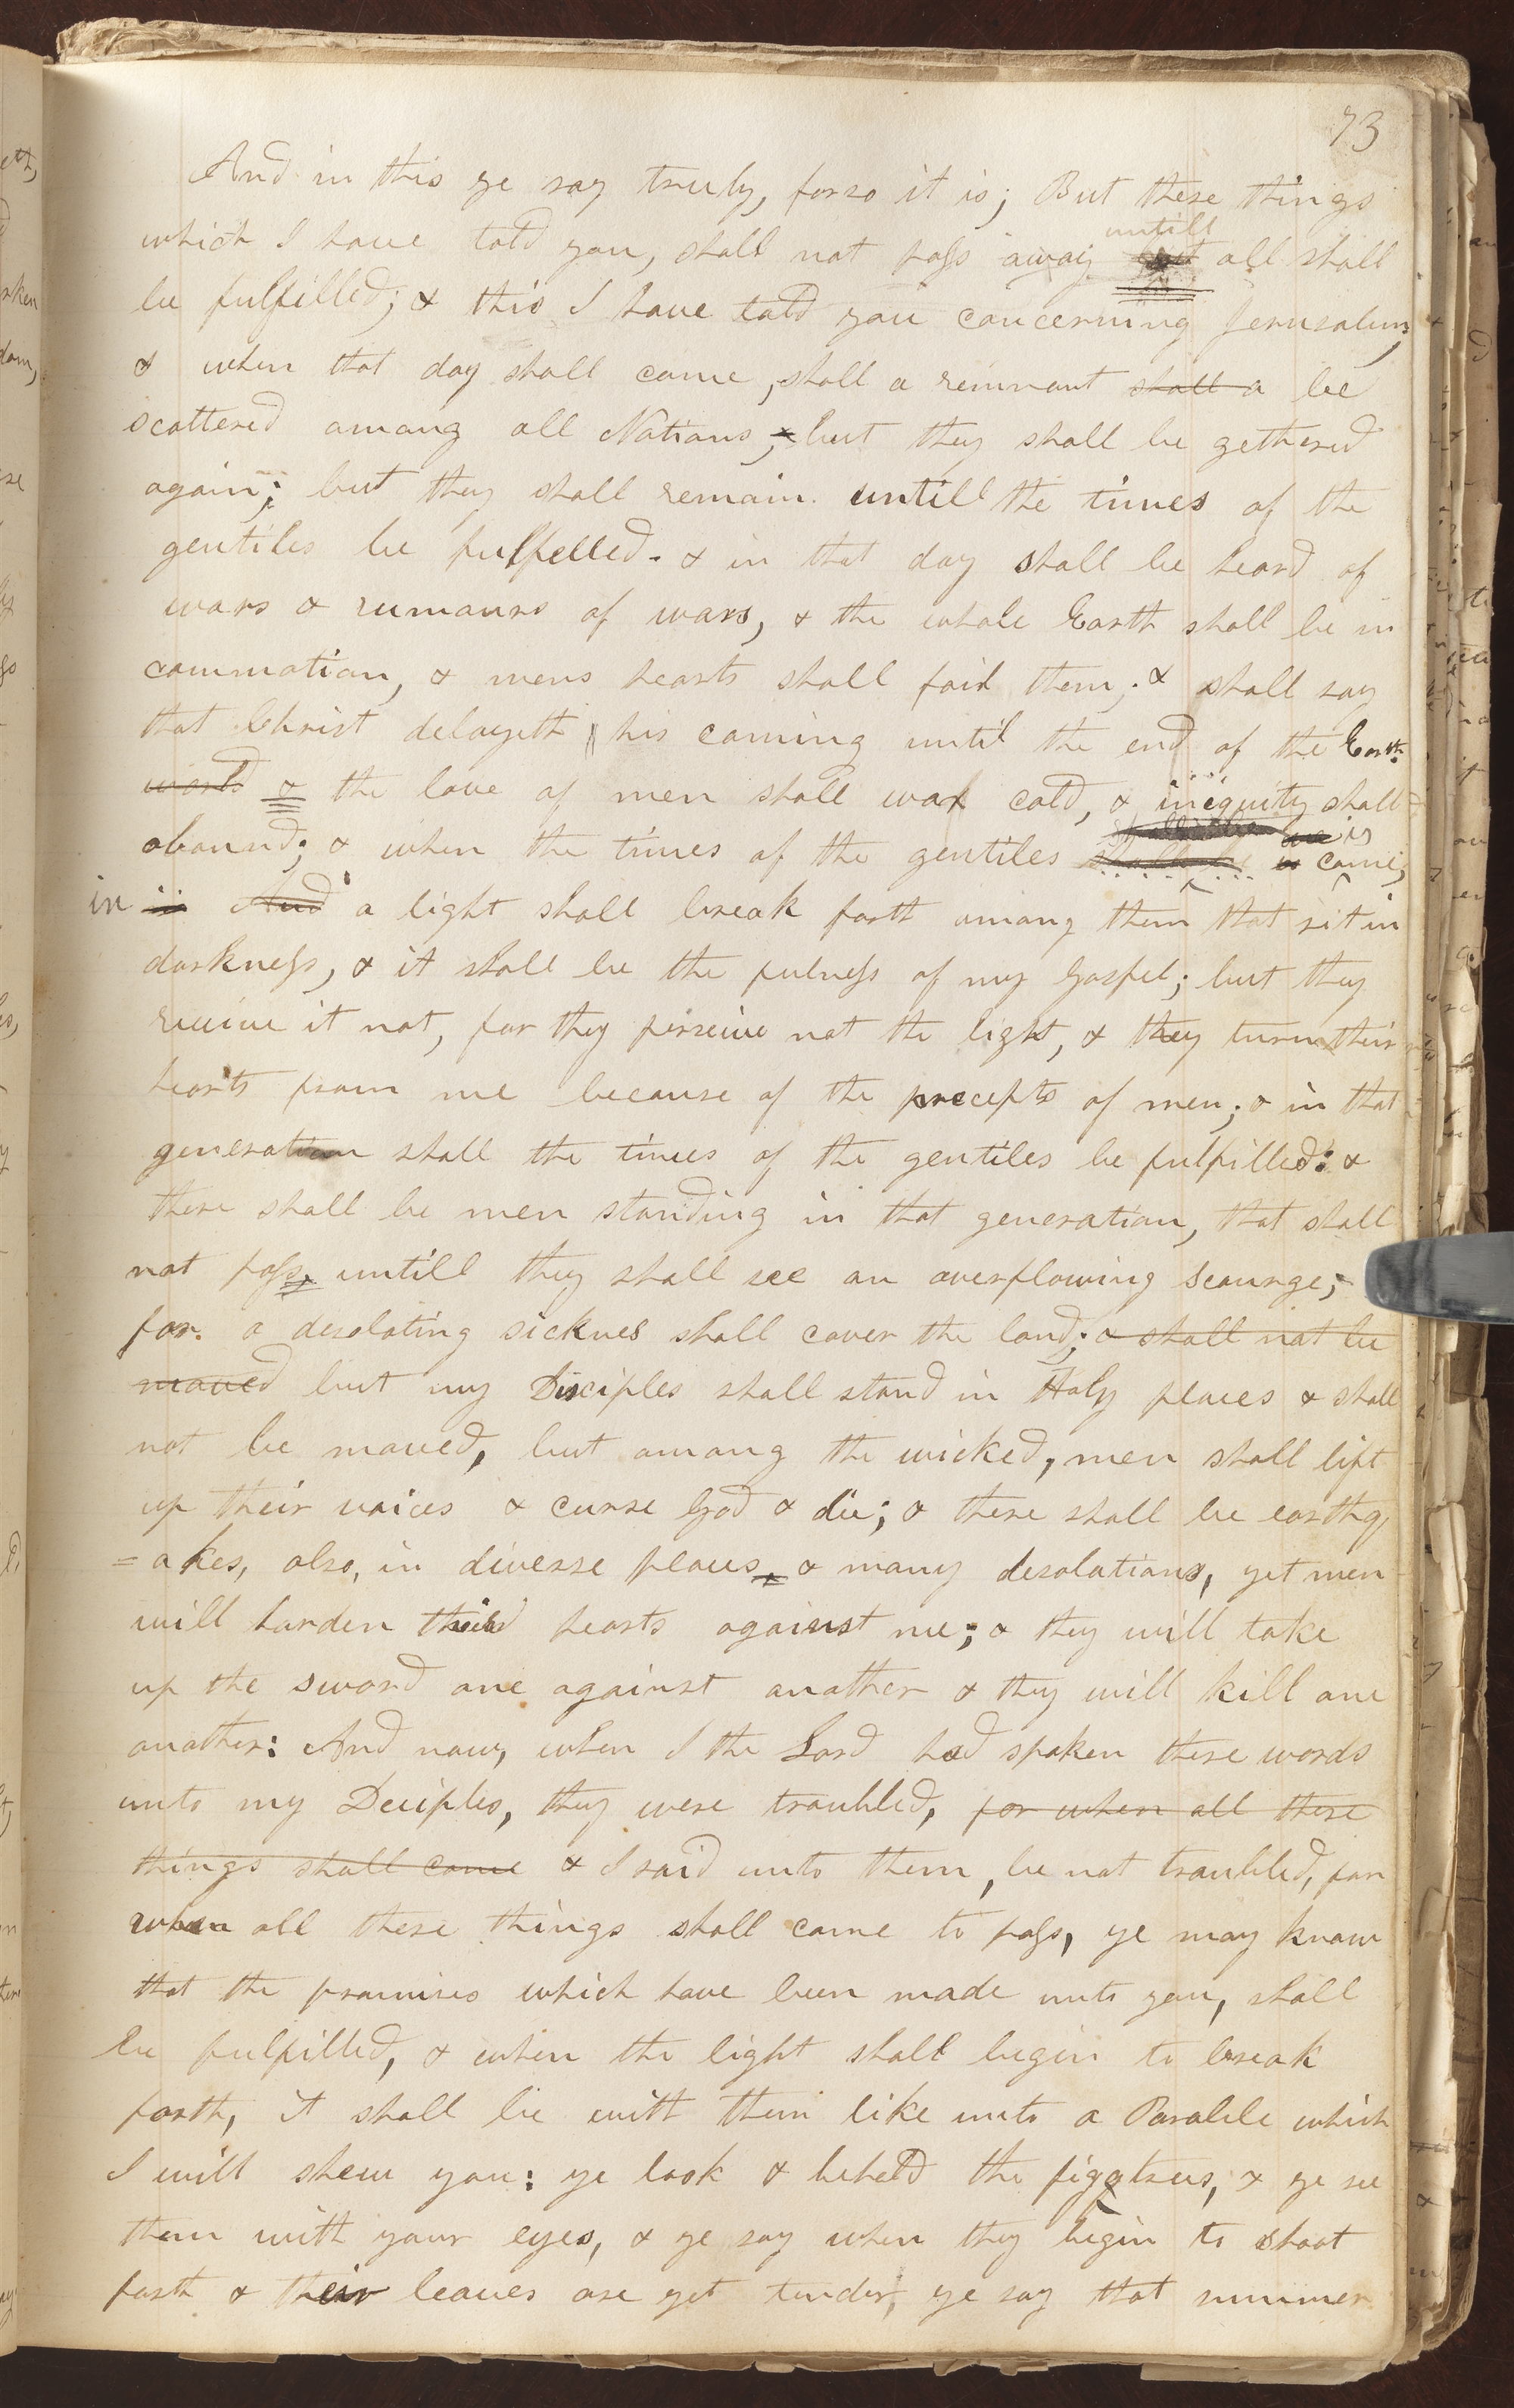 73
And in this ye say truly, for so it is; But these things
which I have told you, shall not pass away untill all shall
be fulfilled; & this I have told you concerning Jerusalem,
& when that day shall come, shall a remnant shall a be
scattered among all Nations; & but they shall be gethered
again; but they shall remain untill the times of the
gentiles be fulfelled. & in that day shall be heard of
wars & rumours of wars, & the whole Earth shall be in
commotion, & mens hearts shall fail them; & shall say
that Christ delayeth his coming until the end of the Earth.
world & the love of men shall wax cold, & iniquity shall
abound; & when the times of the gentiles is come,
in And a light shall break forth among them that sit in
darkness, & it shall be the fulness of my Gospel; but they
receive it not, for they perseive not the light, & they turn their
hearts from me because of the precepts of men; & in that
generation shall the times of the gentiles be fulfilled: &
there shall be men standing in that generation, that shall
not pass, untill they shall see an overflowing scourge;
for a desolating sicknes shall cover the land; & shall not be
moved but my Disciples shall stand in Holy places & shall
not be moved, but among the wicked, men shall lift
up their voices & curse God & die; & there shall be earthq
=akes, also, in diverse places, & many desolations, yet men
will harden their hearts against me; & they will take
up the sword one against another & they will kill one
another: And now, when I the Lord had spoken these words
unto my Deciples, they were troubled, for when all these
things shall come & I said unto them, be not troubled, for
when all these things shall come to pass, ye may know
that the promises which have been made unto you, shall
be fulfilled, & when the light shall begin to break
forth, it shall be with them like unto a Parable which
I will shew you: ye look & beheld the figgtrees, & ye see
them with your eyes, & ye say when they begin to shoot
forth & their leaves are yet tender, ye say that summer